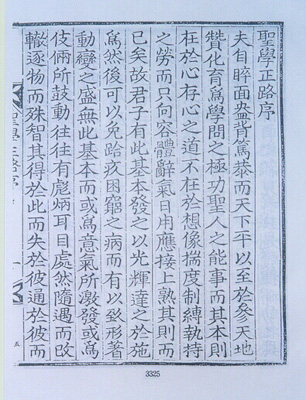 聖學正路序
夫自睟面盎背篤恭而天下平以至於參天地
贊化育爲學問之極功聖人之能事而其本則
在於心存心之道不在於想像揣度制縛執持
之勞而只向容體辭氣日用應接上熟其則而
已矣故君子有此基本發之以光輝達之於施
爲然後可以免跲疚困窮之病而有以致形著
動變之盛無此基本而或爲意氣所激發或爲
伎倆所鼓動往往有彪炳耳目處然隨遇而改
轍逐物而殊智其得於此而失於彼通於彼而
聖學正路序
一
五
3325